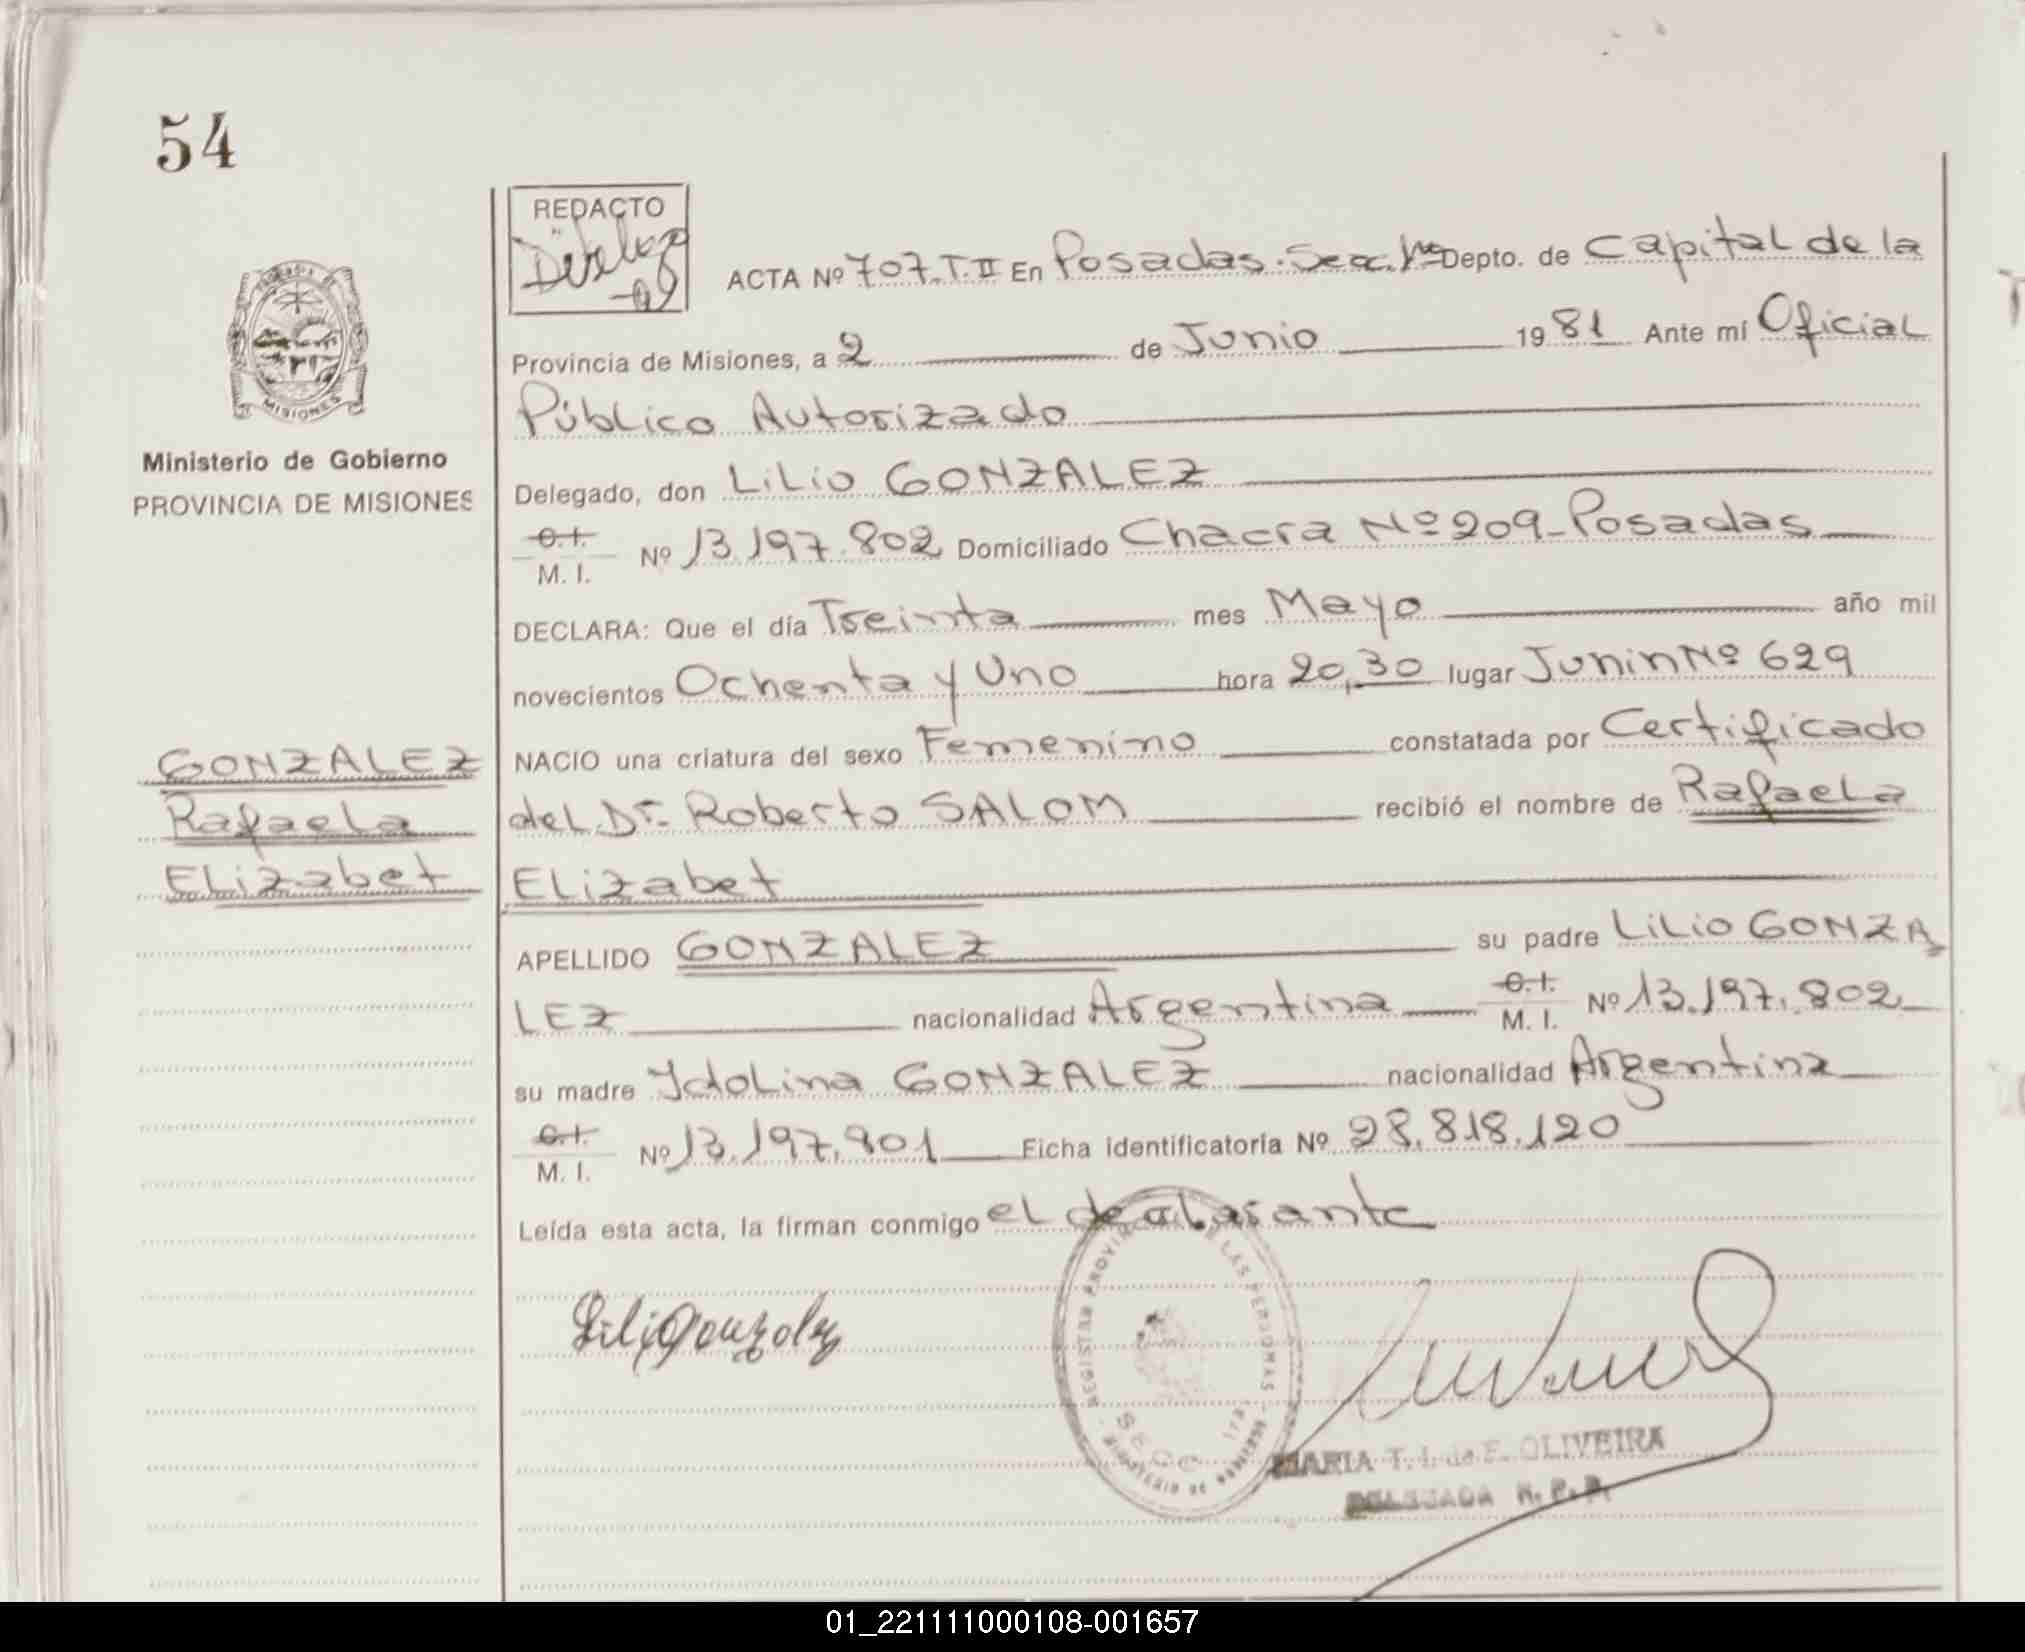 54
REDACTO
ACTA Nº 707. T. II En Posadas. Secc. 1ra Depto. de Capital de la
Provincia de Misiones, a 2 de Junio 19 81 Ante mí Oficial
Público Autorizado
MISIONES
Ministerio de Gobierno
PROVINCIA DE MISIONES
Delegado, don Lilio GONZALEZ
C.I.
M. I. Nº 13.197.802 Domiciliado Chacra Nº 209-Posadas
DECLARA: Que el día Treinta mes Mayo año mil
novecientos Ochenta y Uno hora 20,30 lugar Junin Nº 629
GONZALEZ
Rafaela
Elizabet
NACIO una criatura del sexo Femenino constatada por Certificado
del Dr. Roberto SALOM recibió el nombre de Rafaela
Elizabet
APELLIDO GONZALEZ su padre Lilio GONZA
LEZ nacionalidad Argentina C.I.
M. I. Nº 13.197.802
su madre Idolina GONZALEZ nacionalidad Argentina
C.I.
M. I. Nº 13.197.801 Ficha identificatoria Nº 28.818.120
Leída esta acta, la firman conmigo el dealarante
Lili Gonzalez
REGISTRO PROVINCIAL DE LAS PERSONAS
SECC. 1ra.
MINISTERIO DE GOBIERNO
MARIA T. I. de E. OLIVEIRA
DELEGADA R. P. P.
01_221111000108-001657